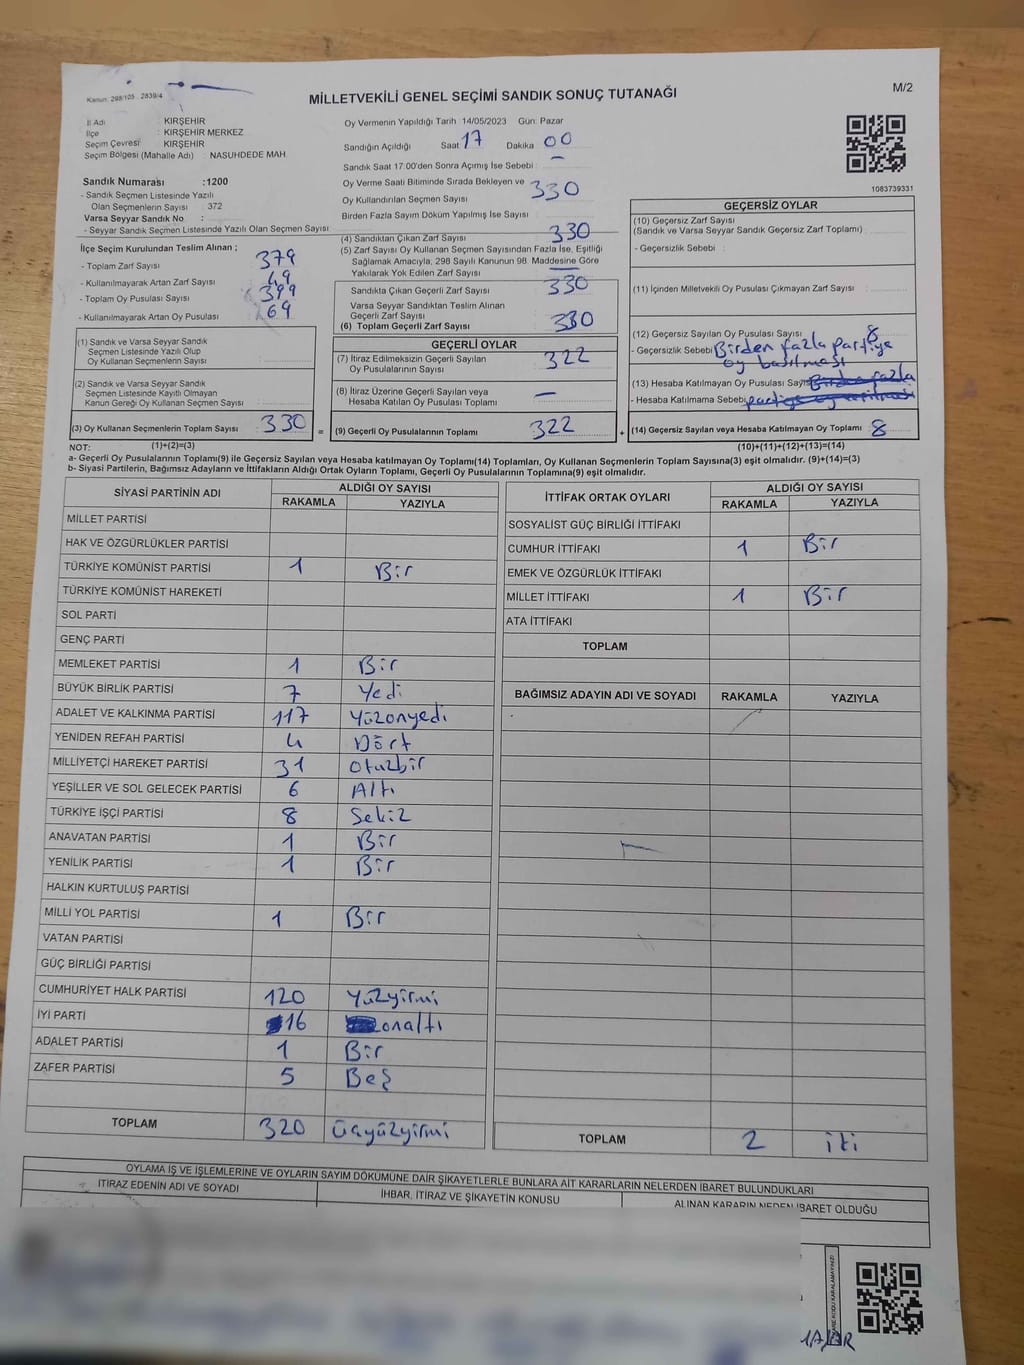 Kanun: 298/105 - 2839/4
M/2
MİLLETVEKİLİ GENEL SEÇİMİ SANDIK SONUÇ TUTANAĞI
İl Adı : KIRŞEHİR
İlçe : KIRŞEHİR MERKEZ
Seçim Çevresi : KIRŞEHİR
Seçim Bölgesi (Mahalle Adı) : NASUHDEDE MAH.
Sandık Numarası :1200
- Sandık Seçmen Listesinde Yazılı
Olan Seçmenlerin Sayısı : 372
Varsa Seyyar Sandık No :
- Seyyar Sandık Seçmen Listesinde Yazılı Olan Seçmen Sayısı:
İlçe Seçim Kurulundan Teslim Alınan ;
- Toplam Zarf Sayısı : 379
- Kullanılmayarak Artan Zarf Sayısı : 49
- Toplam Oy Pusulası Sayısı : 399
- Kullanılmayarak Artan Oy Pusulası : 69
(1) Sandık ve Varsa Seyyar Sandık
Seçmen Listesinde Yazılı Olup
Oy Kullanan Seçmenlerin Sayısı :
(2) Sandık ve Varsa Seyyar Sandık
Seçmen Listesinde Kayıtlı Olmayan
Kanun Gereği Oy Kullanan Seçmen Sayısı :
(3) Oy Kullanan Seçmenlerin Toplam Sayısı : 330
Oy Vermenin Yapıldığı Tarih : 14/05/2023 Gün: Pazar
Sandığın Açıldığı Saat : 17 Dakika : 00
Sandık Saat 17:00'den Sonra Açmış İse Sebebi : —
Oy Verme Saati Bitiminde Sırada Bekleyen ve
Oy Kullandırılan Seçmen Sayısı : 330
Birden Fazla Sayım Döküm Yapılmış İse Sayısı :
(4) Sandıktan Çıkan Zarf Sayısı : 330
(5) Zarf Sayısı Oy Kullanan Seçmen Sayısından Fazla İse, Eşitliği
Sağlamak Amacıyla, 298 Sayılı Kanunun 98. Maddesine Göre
Yakılarak Yok Edilen Zarf Sayısı : —
Sandıkta Çıkan Geçerli Zarf Sayısı : 330
Varsa Seyyar Sandıktan Teslim Alınan
Geçerli Zarf Sayısı :
(6) Toplam Geçerli Zarf Sayısı : 330
GEÇERLİ OYLAR
(7) İtiraz Edilmeksizin Geçerli Sayılan
Oy Pusulalarının Sayısı : 322
(8) İtiraz Üzerine Geçerli Sayılan veya
Hesaba Katılan Oy Pusulaları Toplamı : —
= (9) Geçerli Oy Pusulalarının Toplamı : 322 +
1083739331
GEÇERSİZ OYLAR
(10) Geçersiz Zarf Sayısı
(Sandık ve Varsa Seyyar Sandık Geçersiz Zarf Toplamı) :
- Geçersizlik Sebebi :
(11) İçinden Milletvekili Oy Pusulası Çıkmayan Zarf Sayısı :
(12) Geçersiz Sayılan Oy Pusulası Sayısı : 8
- Geçersizlik Sebebi : Birden fazla partiye
oy basılması
(13) Hesaba Katılmayan Oy Pusulası Sayısı Birden fazla
- Hesaba Katılmama Sebebi
(14) Geçersiz Sayılan veya Hesaba Katılmayan Oy Toplamı : 8
NOT: (1)+(2)=(3) (10)+(11)+(12)+(13)=(14)
a- Geçerli Oy Pusulalarının Toplamı(9) ile Geçersiz Sayılan veya Hesaba katılmayan Oy Toplamı(14) Toplamları, Oy Kullanan Seçmenlerin Toplam Sayısına(3) eşit olmalıdır. (9)+(14)=(3)
b- Siyasi Partilerin, Bağımsız Adayların ve İttifakların Aldığı Ortak Oyların Toplamı, Geçerli Oy Pusulalarının Toplamına(9) eşit olmalıdır.
SİYASİ PARTİNİN ADI ALDIĞI OY SAYISI
RAKAMLA YAZIYLA
MİLLET PARTİSİ
HAK VE ÖZGÜRLÜKLER PARTİSİ
TÜRKİYE KOMÜNİST PARTİSİ 1 Bir
TÜRKİYE KOMÜNİST HAREKETİ
SOL PARTİ
GENÇ PARTİ
MEMLEKET PARTİSİ 1 Bir
BÜYÜK BİRLİK PARTİSİ 7 Yedi
ADALET VE KALKINMA PARTİSİ 117 Yüzonyedi
YENİDEN REFAH PARTİSİ 4 Dört
MİLLİYETÇİ HAREKET PARTİSİ 31 Otuzbir
YEŞİLLER VE SOL GELECEK PARTİSİ 6 Altı
TÜRKİYE İŞÇİ PARTİSİ 8 Sekiz
ANAVATAN PARTİSİ 1 Bir
YENİLİK PARTİSİ 1 Bir
HALKIN KURTULUŞ PARTİSİ
MİLLİ YOL PARTİSİ 1 Bir
VATAN PARTİSİ
GÜÇ BİRLİĞİ PARTİSİ
CUMHURİYET HALK PARTİSİ 120 Yüzyirmi
İYİ PARTİ 16 onaltı
ADALET PARTİSİ 1 Bir
ZAFER PARTİSİ 5 Beş
TOPLAM 320 üçyüzyirmi
İTTİFAK ORTAK OYLARI ALDIĞI OY SAYISI
RAKAMLA YAZIYLA
SOSYALİST GÜÇ BİRLİĞİ İTTİFAKI
CUMHUR İTTİFAKI 1 Bir
EMEK VE ÖZGÜRLÜK İTTİFAKI
MİLLET İTTİFAKI 1 Bir
ATA İTTİFAKI
TOPLAM
BAĞIMSIZ ADAYIN ADI VE SOYADI RAKAMLA YAZIYLA
TOPLAM 2 iki
OYLAMA İŞ VE İŞLEMLERİNE VE OYLARIN SAYIM DÖKÜMÜNE DAİR ŞİKAYETLERLE BUNLARA AİT KARARLARIN NELERDEN İBARET BULUNDUKLARI
İTİRAZ EDENİN ADI VE SOYADI İHBAR, İTİRAZ VE ŞİKAYETİN KONUSU ALINAN KARARIN NEDEN İBARET OLDUĞU